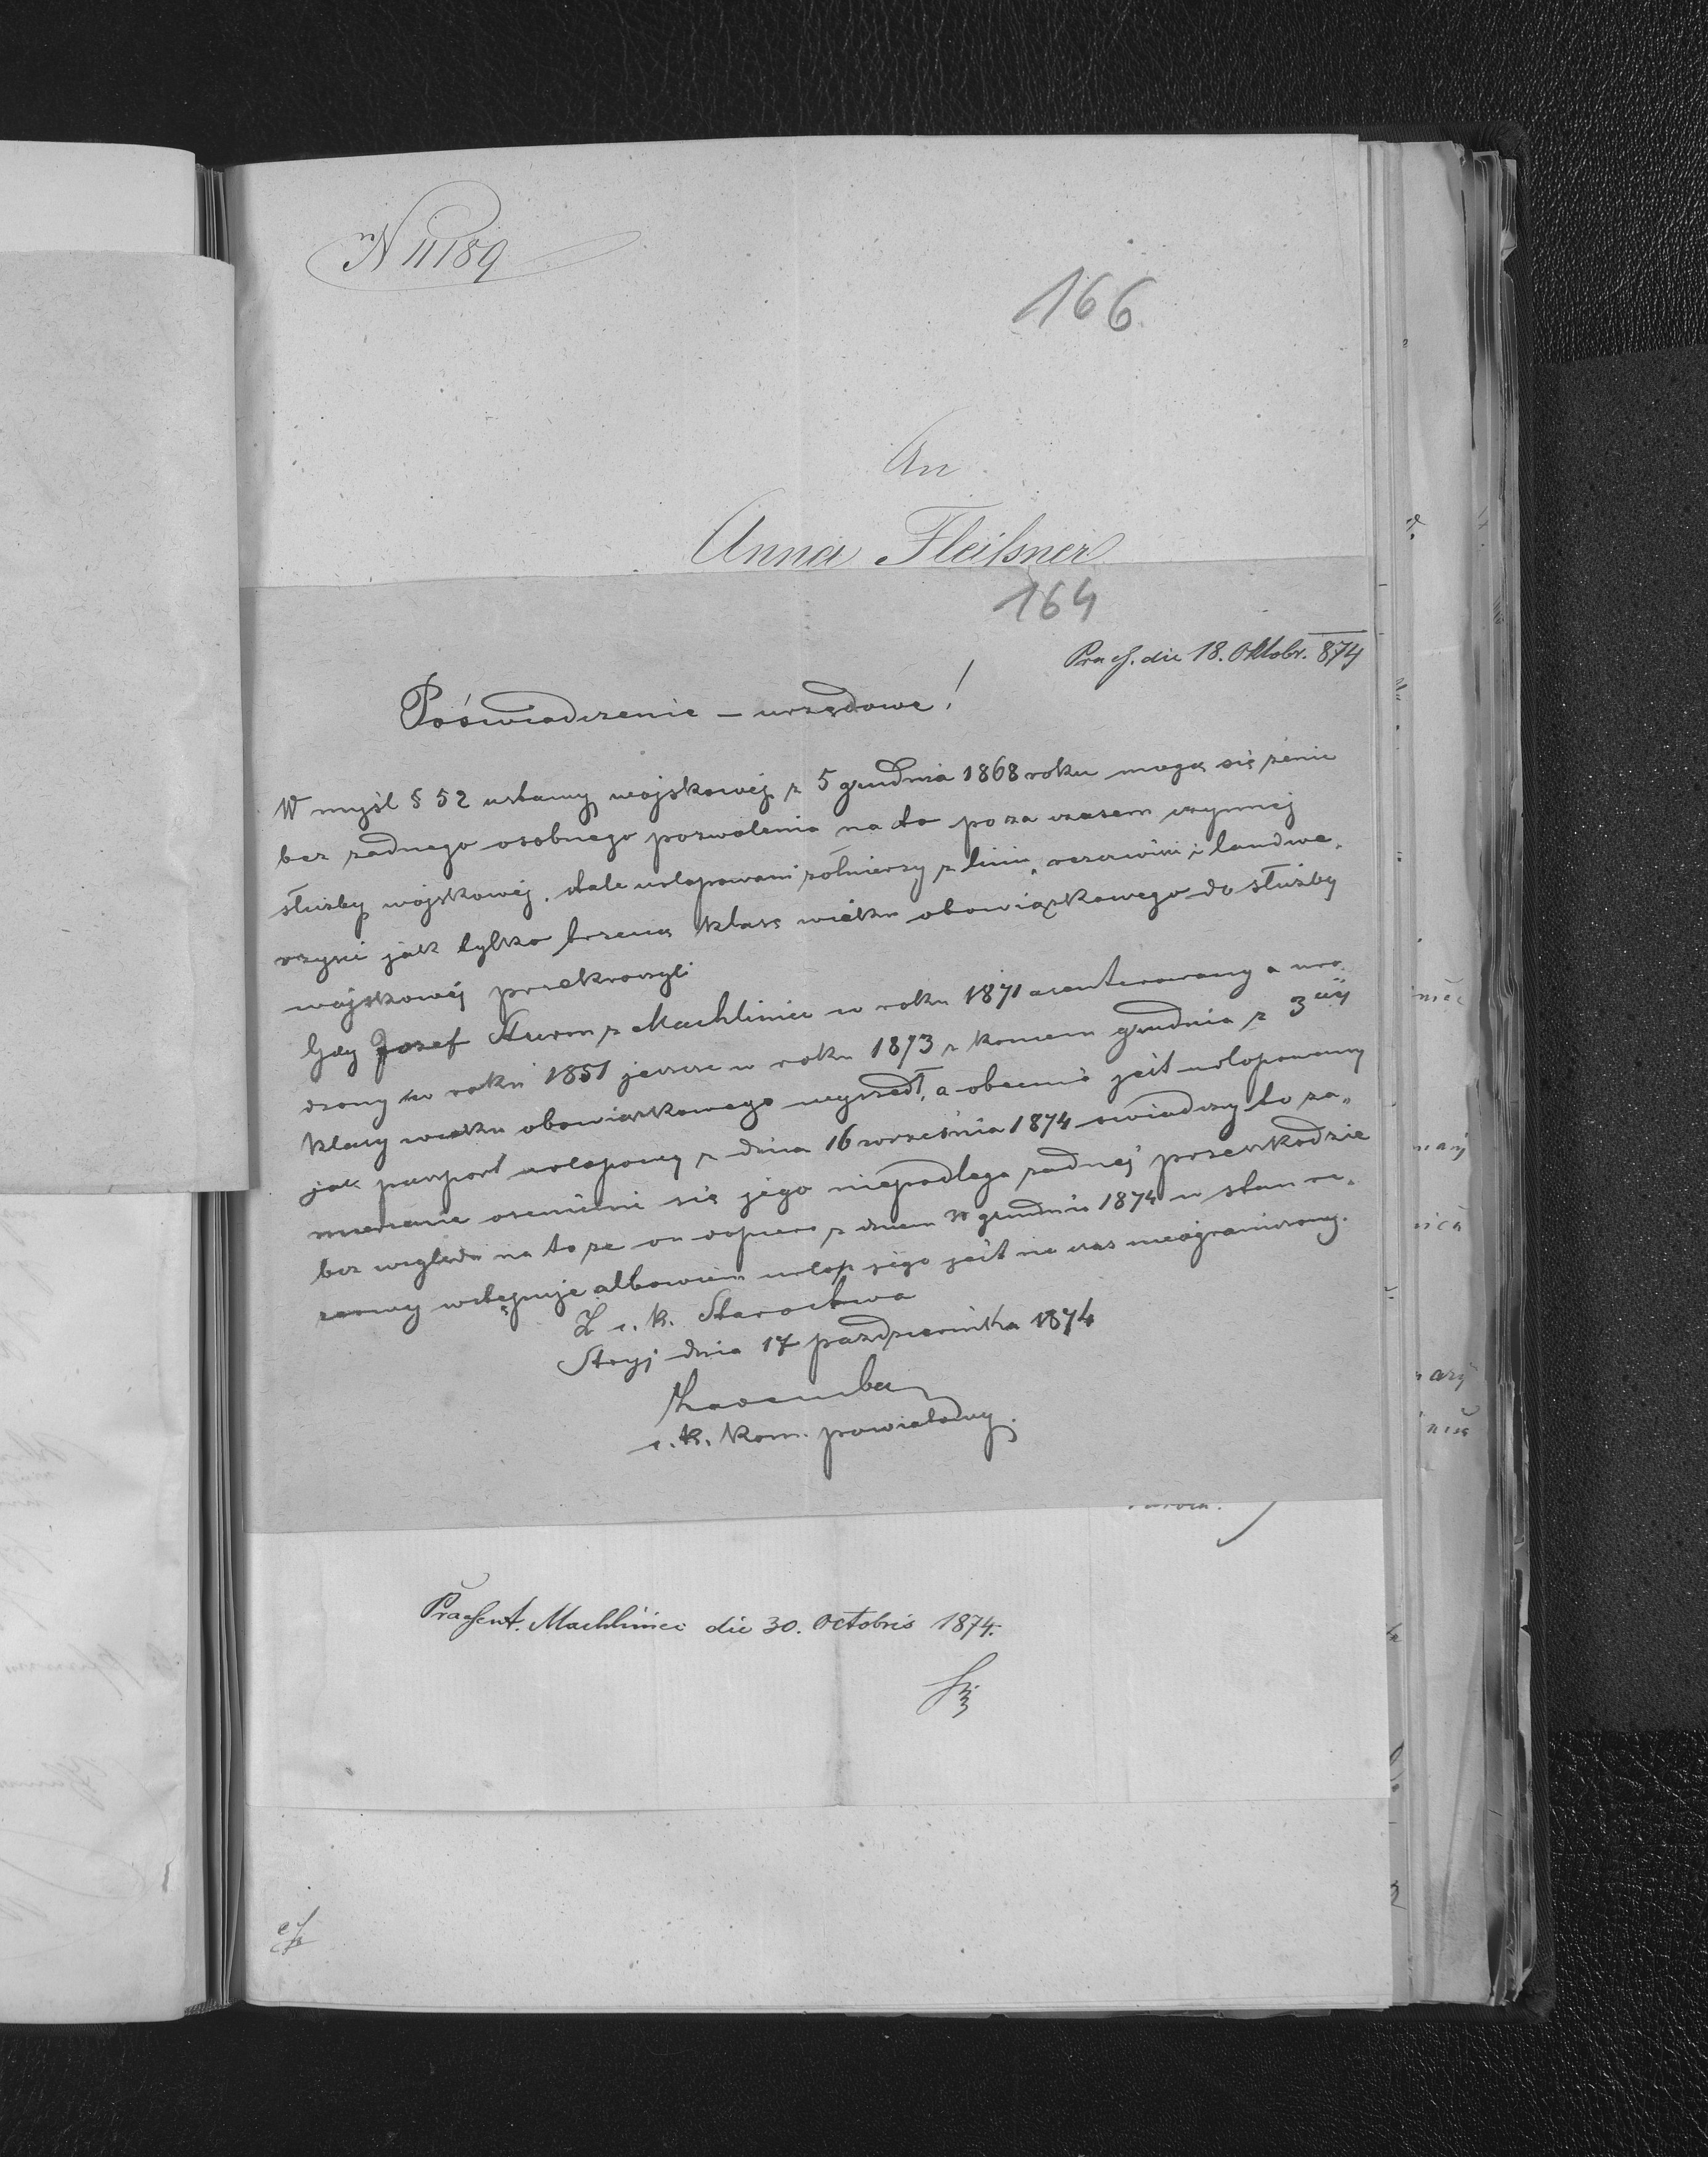 N 11189
166
An
Anna Fleißner
164
Praes. die 18. Oktobr. 874
Poświadczenie – urzędowe!
W myśl § 52 ustawy wojskowej z 5 grudnia 1868 roku mogą się żenić
bez żadnego osobnego pozwolenia na to po za czasem czynnej
służby wojskowej. stale urlopowani żołnierzy z linii, rezerwiści i landwe„
rzyści jak tylko trzecią klasę wieku obowiązkowego do służby
wojskowej przekroczyli
Gdy Josef Sturm z Machliniec w roku 1871 asenterowany a uro„
dzony w roku 1851 jeszcze w roku 1873 z koncem grudnia z 3ciéj
klasy wieku obowiązkowego wyszedł, a obecnie jest urlopowany
jak paszport urlopowy z dnia 16 września 1874 swiadczy to za„
mierzenie ożenienie się jego niepodlega żadnej przeszkodzie
bez względu na to ze on dopiero z dniem grudnia 1874 w stan re„
zerwy wstępuje albowiem urlop jego jest na czas nieograniczony.
Z c. k. Starostwa
Stryj dnia 17 pazdziernika 1874
c. k. Kom. powiatowy.
Praesent. Machliniec die 30. Octobris 1874.